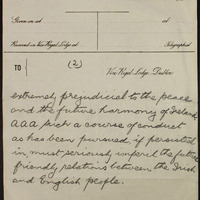 Given in at at
Received in Vice Regal Lodge at Telegraphed
TO (2) Vice Regal Lodge, Dublin
extremely prejudicial to the peace
and the future harmony of Ireland
aaa Such a course of conduct
as has been pursued if persisted
in must seriously imperil the future
friendly relations between the Irish
and English people.